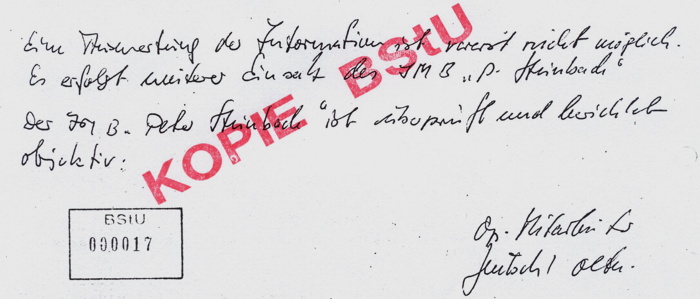 Eine Auswertung der Information ist vorerst nicht möglich.
Es erfolgt weiterer Einsatz des IMB „P. Steinbach“
Der IMB „Peter Steinbach“ ist überprüft und berichtet
objektiv.
KOPIE BStU
BStU
000017
Op. Mitarbeiter